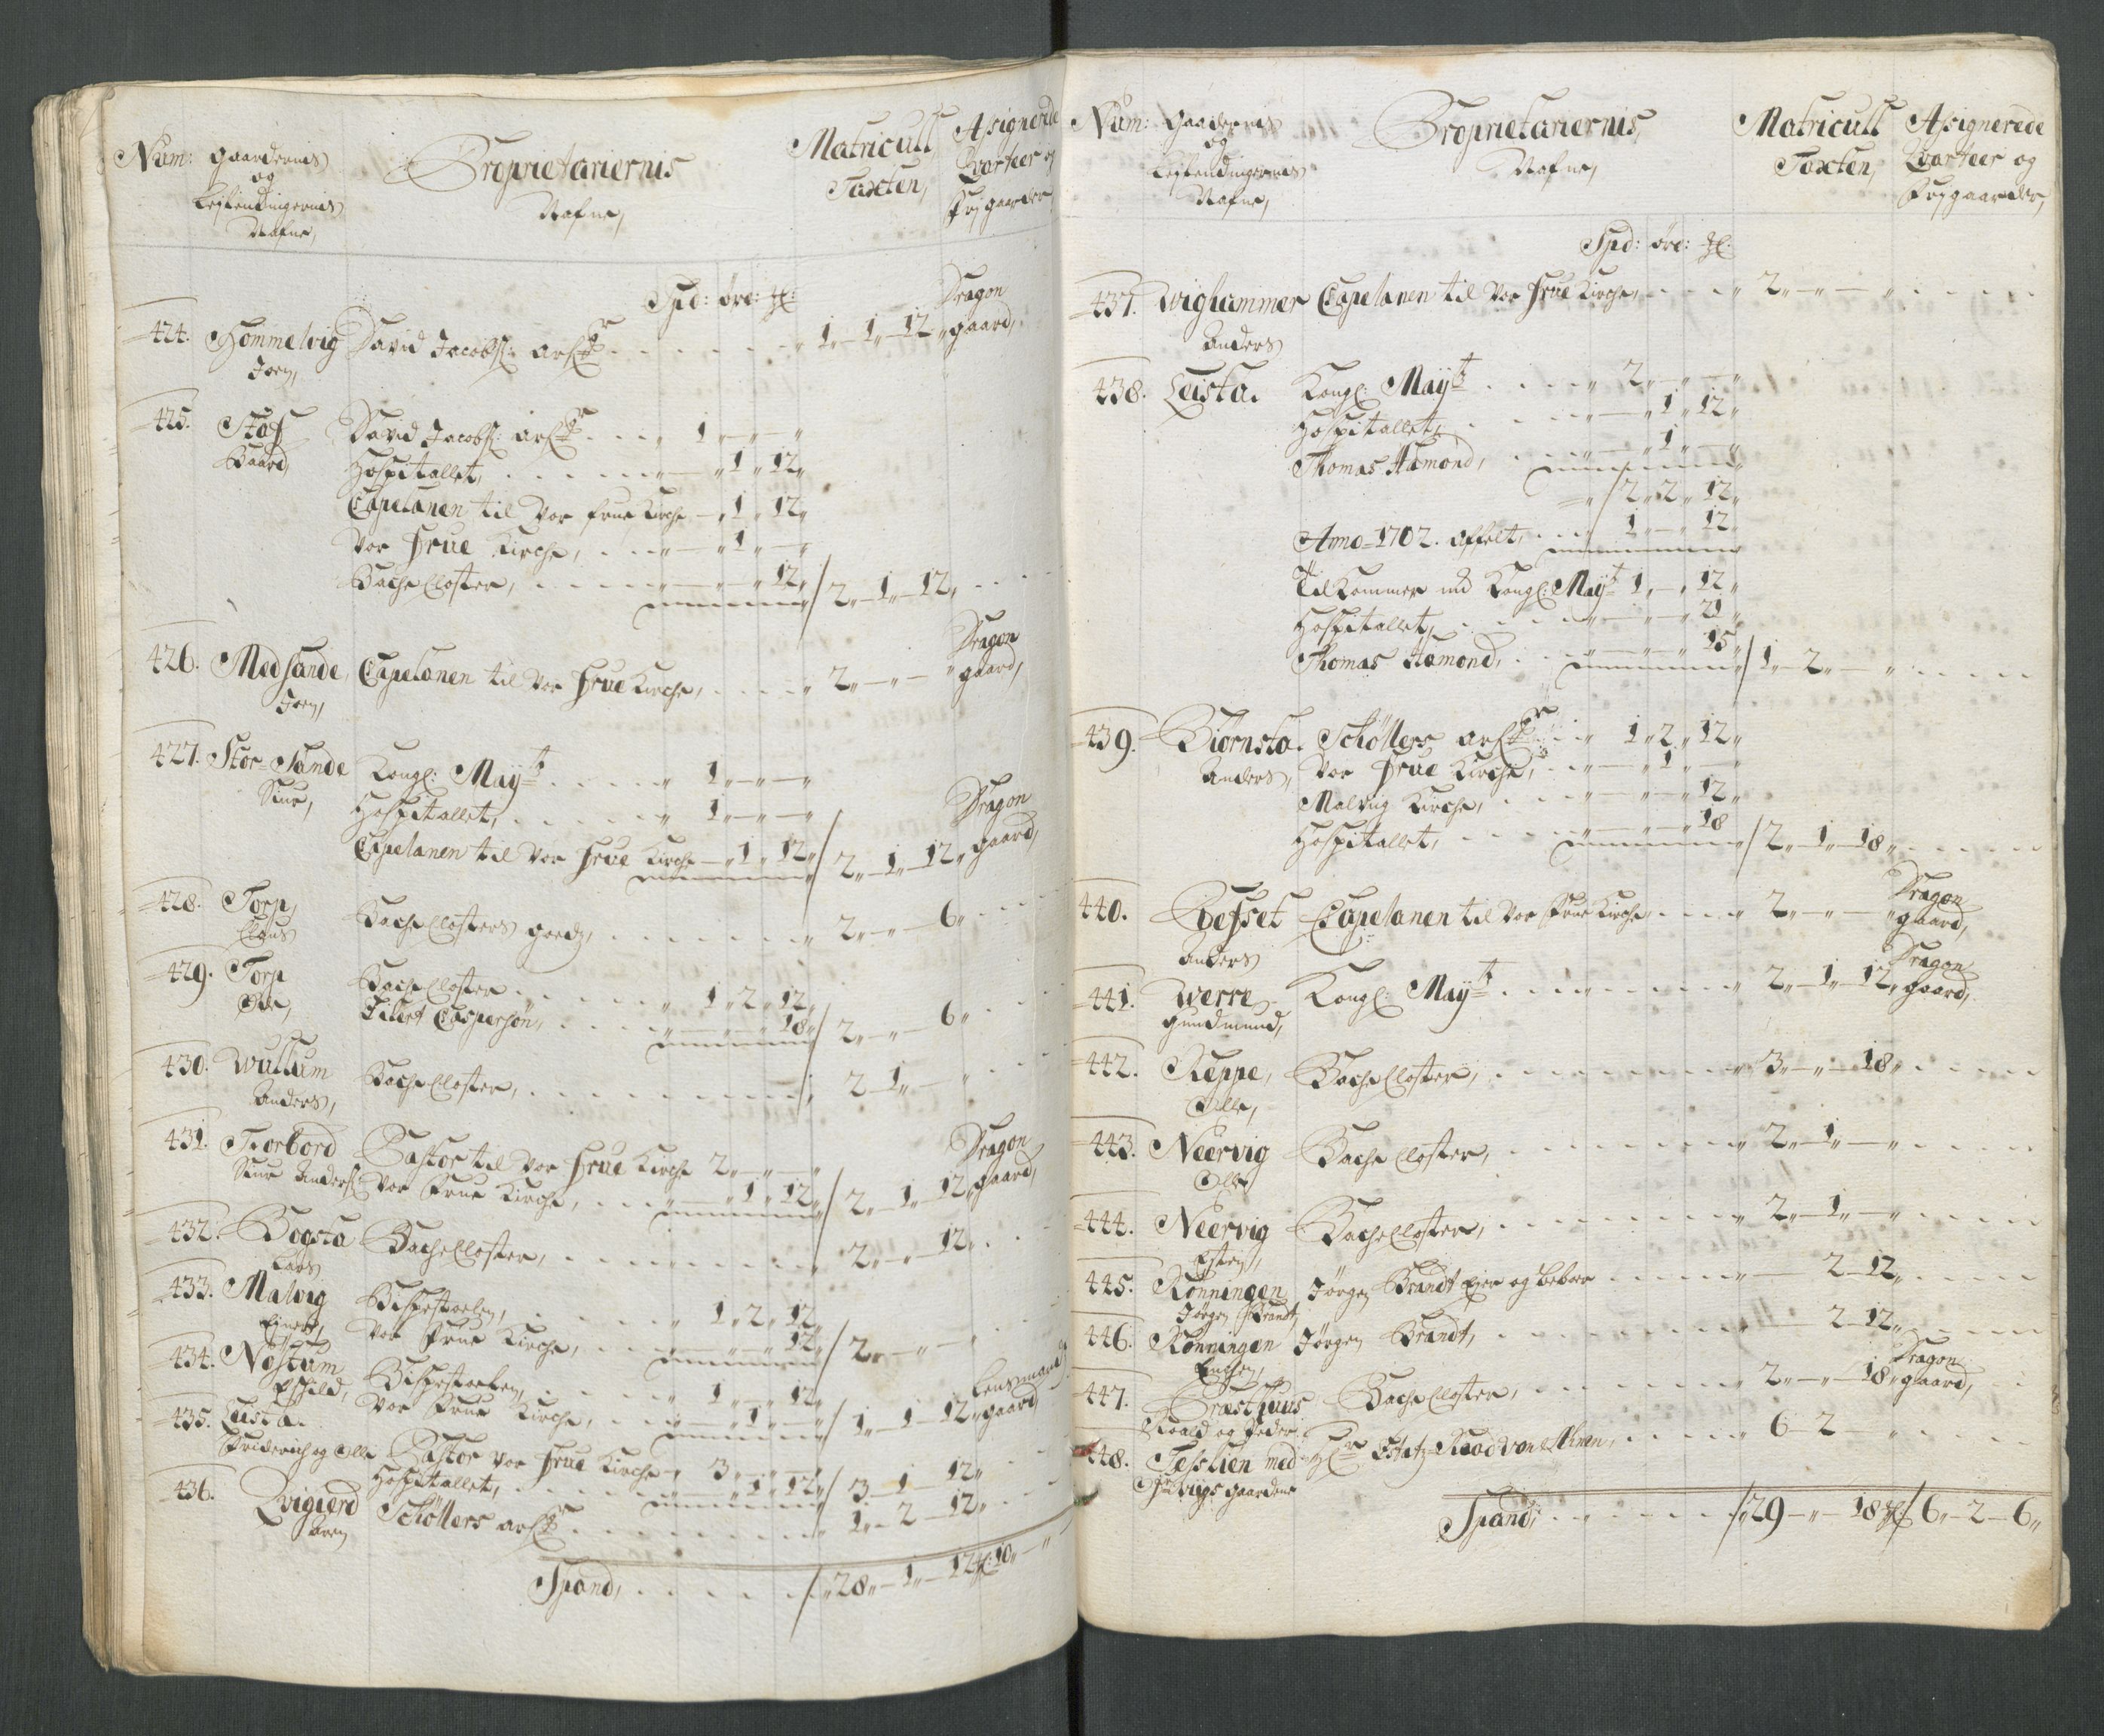 Num: Gaardernis og Leylendingernis Nafne,
Proprietariernis Nafne,
Matricull Taxten,
Asignerede Qvarteer og Frj gaarder,
Spd: öre: ȝ:
424. Hommelvig David Jacobs: arf . . . 1 - 1 - 12 Dragon gaard,
Joen,
425. Staf David Jacobs: arf . . . 1 - -
Baard, Hospitallet, . . . 1 12
Capelanen til Vor frue Kirche 1 12
Vor Frue Kirche, . . . 1 -
Bache Closter, . . . 12 / 2 - 1 - 12
426. Medsande, Capelanen til Vor Frue Kirche, . . . 2 - - Dragon gaard,
Joen,
427. Stor-Sande Kongl: Mayt . . . 1 - -
Siur, Hospitallet, . . . 1 - -
Capelanen til Vor Frue Kirche 1 12 / 2 - 1 - 12 Dragon gaard,
428. Torp, Bache Closters goedz, . . . 2 - - 6
Claus
429. Torp Bache Closter . . . 1 2 12
Ole, Eilert Caspersøn, . . . 18 / 2 - - 6
430. Wullum Bache Closter, . . . 2 1 -
Anders,
431. Fiorbord Pastor til Vor Frue Kirche 2 - -
Siur Anders: Vor Frue Kirche, . . . 1 12 / 2 - 1 - 12 Dragon gaard,
432. Bogsta Bache Closter, . . . 2 - - 12
Lars
433. Malvig Bispestoelen, . . . 1 2 12
Ejner, Vor Frue Kirche, . . . 12 / 2 - -
434. Nestum Bispestoelen, . . . 1 - 12
Eschild, Vor Frue Kirche, . . . 1 - / 1 - 1 - 12 Lensmands gaard,
435. Leista. Pastor Vor Frue Kirche 3 - -
Friderich og Olle Hospitallet, . . . 1 12 / 3 - 1 - 12
436. Qvigierd Schöllers arf . . . 1 - 2 - 12
Aren
Spand, . . . / 28 - 1 - 12 ȝ: 10 -
Num: Gaardernis og Leylendingernis Nafne,
Proprietariernis Nafne,
Matricull Taxten,
Asignerede Qvarteer og Frj gaarder,
Spd: öre: ȝ:
437. Wighammer Capelanen til Vor Frue Kirche, . . . 2 - -
Anders
438. Leista. Kongl: Mayt . . . 2 - -
Hospitallet, . . . 1 12
Thomas Hamond, . . . 1 -
/ 2 2 12
Anno 1702. affelt, . . . 1 - 12
Tilkommer nu Kongl: Mayt 1 - 12
Hospitallet, . . . 21
Thomas Hamond, . . . 15 / 1 - 2 -
439. Biörnsta. Schöllers arf . . . 1 2 12
Anders, Vor Frue Kirche, . . . 1 -
Malvig Kirche, . . . 12
Hospitallet, . . . 18 / 2 - 1 - 18
440. Befset Capelanen til Vor Frue Kirche, . . . 2 - - Dragon gaard,
Anders
441. Werre Kongl: Mayt . . . 2 - 1 - 12 Dragon gaard,
Gundmund,
442. Reppe, Bache Closter, . . . 3 - - 18
Olle,
443. Neervig Bache Closter, . . . 2 - 1 -
Olle
444. Neervig Bache Closter, . . . 2 - 1 -
Esten,
445. Rönningen Jörgen Brandt Ejer og beboer . . . 2 - 12
Jörgen Brandt
446. Rönningen Jörgen Brandt, . . . 2 - 12
447. Præsthuus Bache Closter, . . . 2 - - 18 Dragon gaard,
Roald og Peder
448. Fesslien med Hr Etatz-Raad von Ahnen, . . . 6 - 2 -
gaardene
Spand, . . . / 29 - - 18 ȝ / 6 - 2 - 6